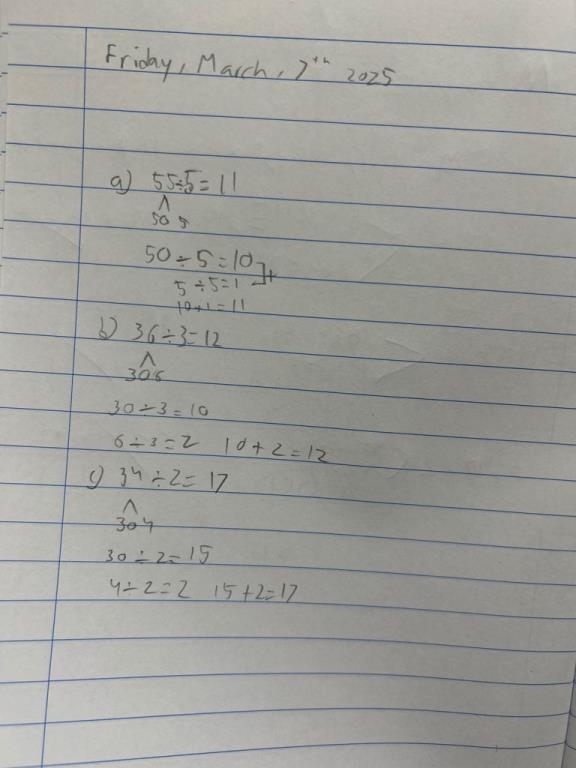 Friday, March, 7th 2025
a) 55÷5=11
50 5
50÷5=10
5÷5=1 ]+
10+1=11
b) 36÷3=12
30 6
30÷3=10
6÷3=2 10+2=12
c) 34÷2=17
30 4
30÷2=15
4÷2=2 15+2=17